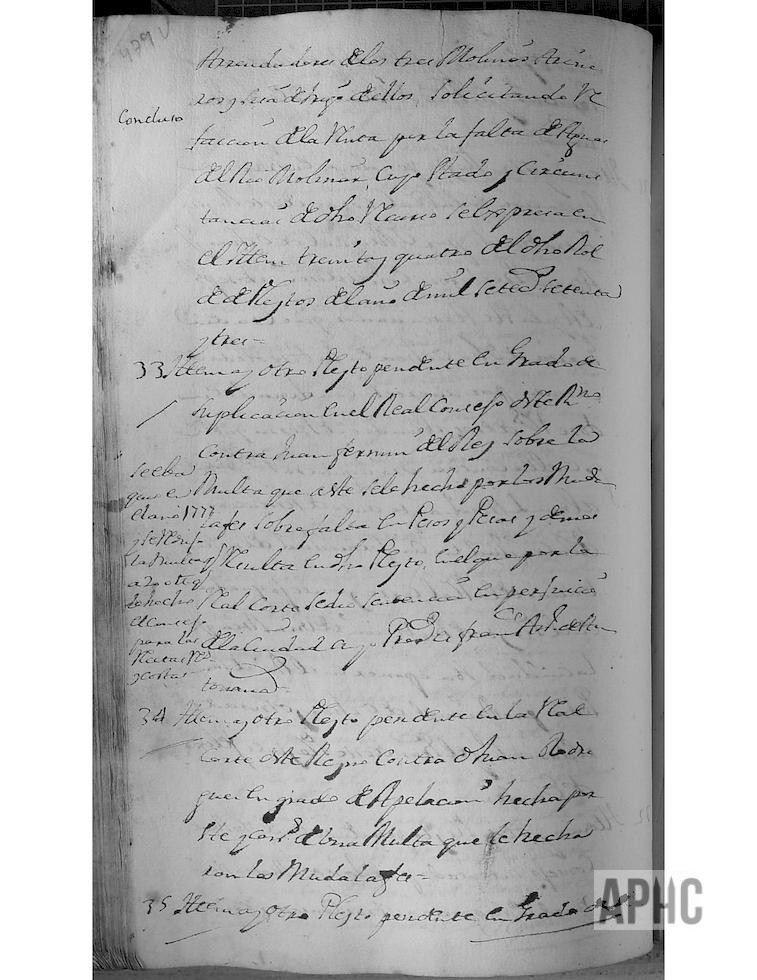 479 V
Arrendadores de los tres Molinos Arine
ros y de dhos, solicitando Re
Concluso
faccion de la Renta por la falta de Aguas
del Rio Molinar, Cuyo Stado y Circuns
tancias de dho Recurso se expresa en
el Ittem treinta y quatro del dho Rol
de Pleytos del año de mil setecs setenta
y tres=
33 Ittem ay otro Pleyto pendente en Grado de
suplicacion en el Real Consejo deste Rno
contra Juan fermin del Rey sobre la
Multa que a este se le hecho por los Muda
lafes sobre falta en Pesos y Pesas y demas
Resulta en dho Pleyto, en el que por la
Real Corte se dio Sentencia en perjuicio
de la Ciudad cuyo franco Anto de
se
que en
el año 1777
la Multa
a 20
el Consejo
para las
y costas
34 Ittem ay otro Pleyto pendente en la Real
Corte deste Reyno Contra Juan Rodri
guez en grado de Apelacion hecha por
Ste de una Multa que le hecha
ron los Mudalafes=
35 Ittem ay otro Pleyto pendente en Grado de
APHC